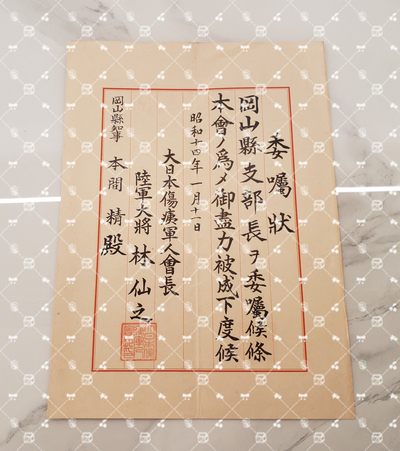 委囑狀
岡山縣支部長ヲ委囑候條
本會ノ爲メ御盡力被成下度候
昭和十四年一月十一日
大日本傷痍軍人會長
陸軍大將 林仙之
岡山縣知事 本間精殿